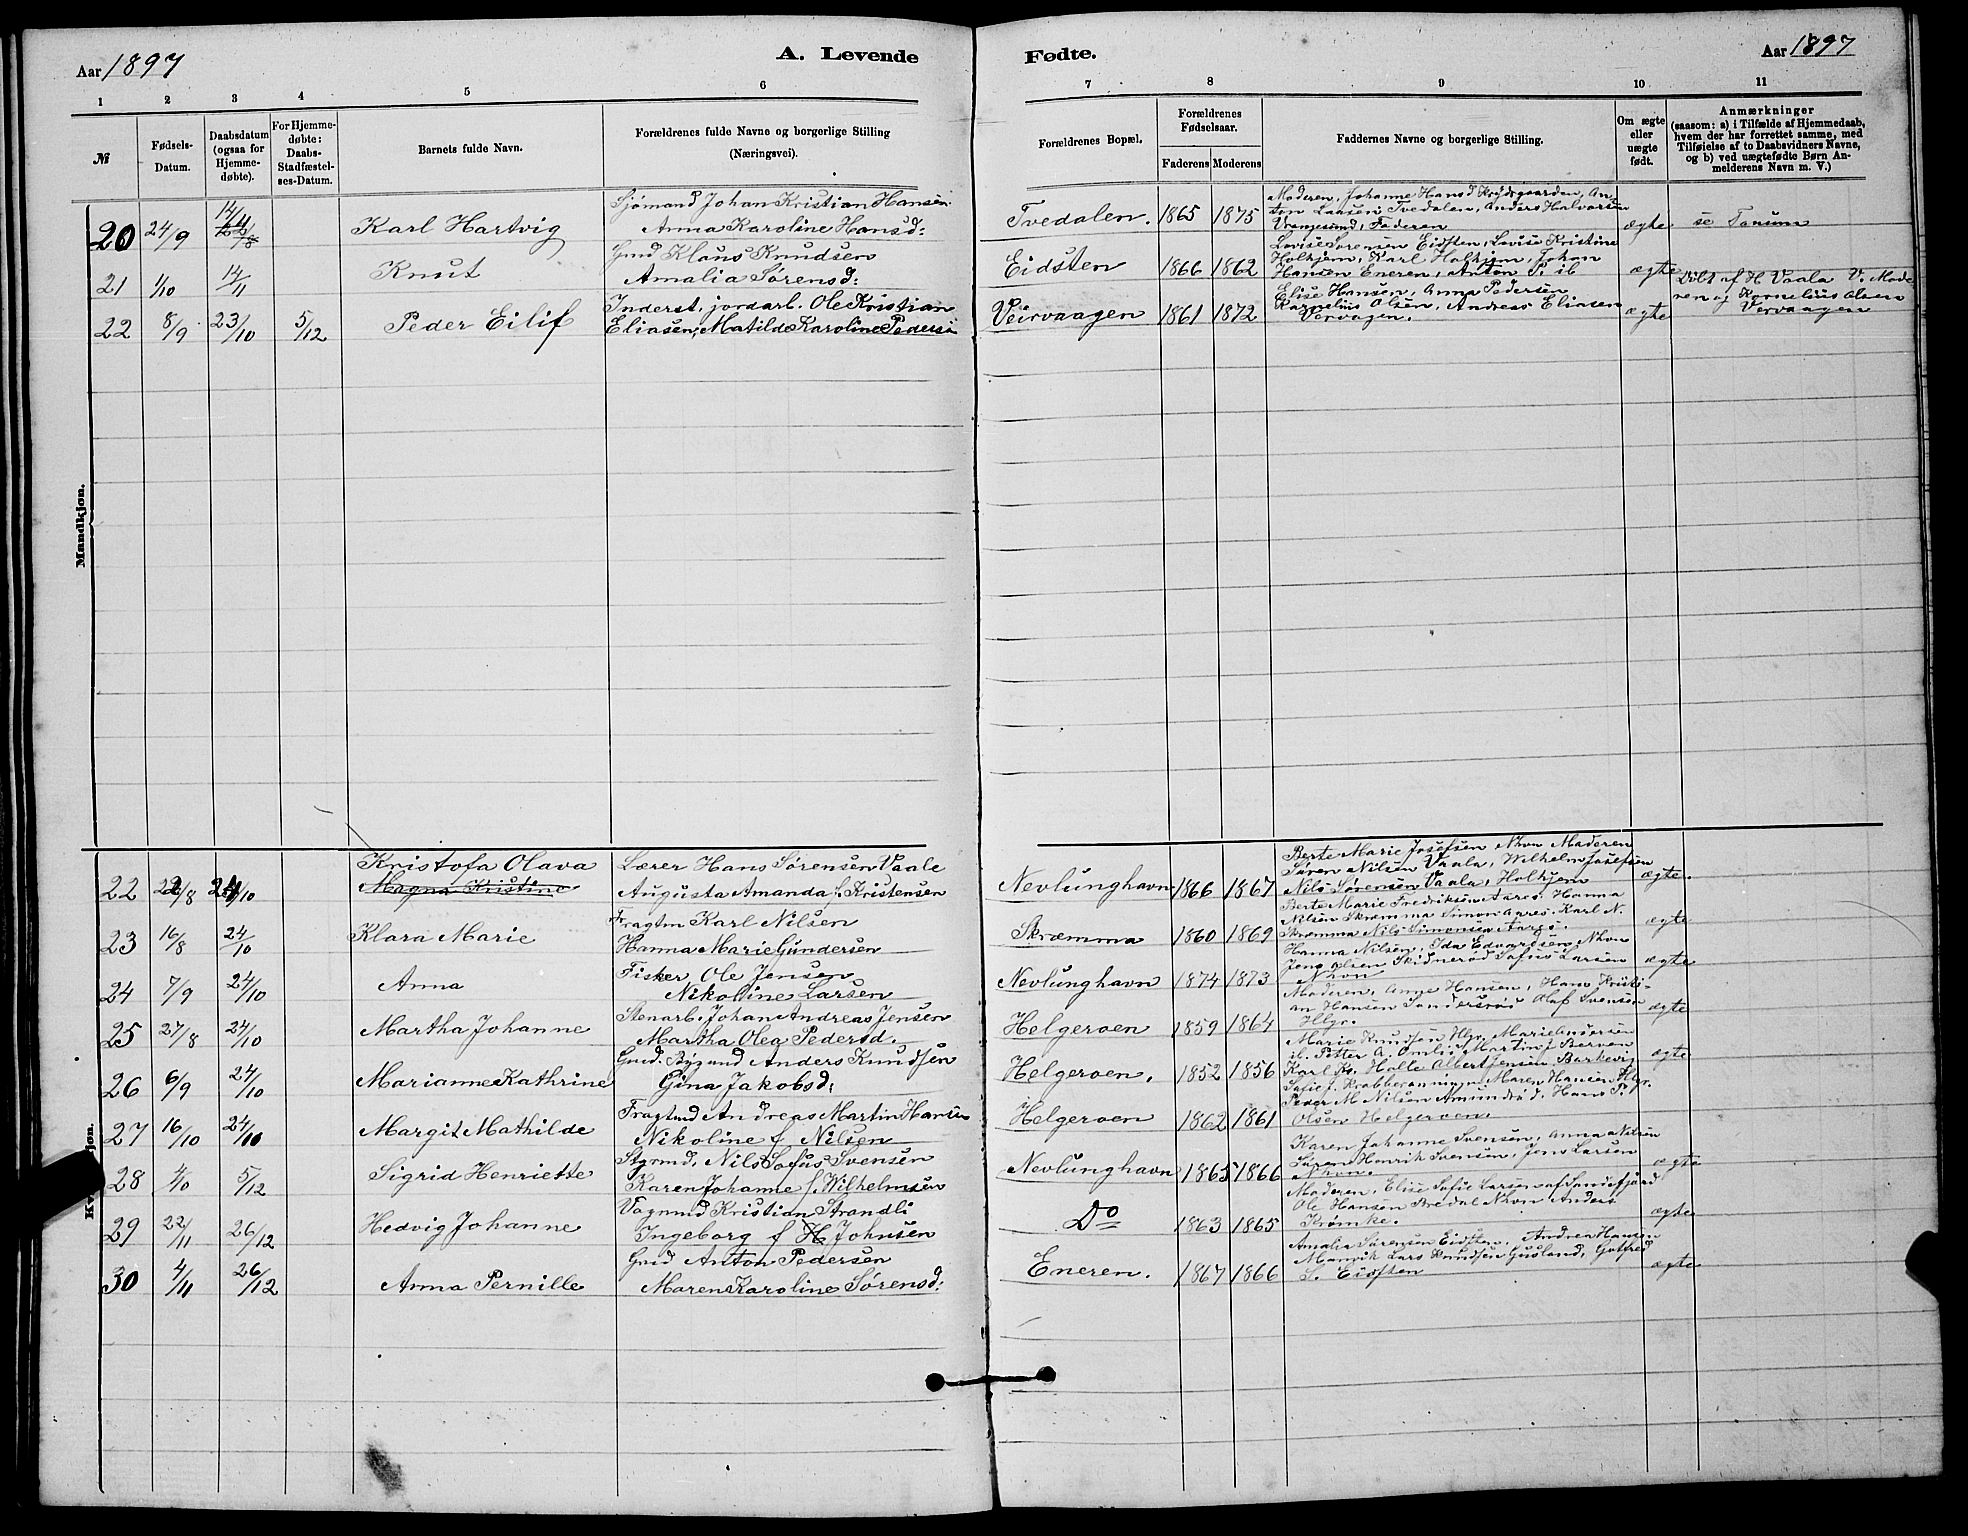 Aar 1897
A. Levende
Fødte.
Aar 1897
1 2 3 4 5 6 7 8 9 10 11
№
Fødsels-
Datum.
Daabsdatum
(ogsaa for
Hjemme-
døbte).
For Hjemme-
døbte:
Daabs-
Stadfæstel-
ses-Datum.
Barnets fulde Navn.
Forældrenes fulde Navne og borgerlige Stilling
(Næringsvei).
Forældrenes Bopæl.
Forældrenes
Fødselsaar.
Faderens Moderens
Faddernes Navne og borgerlige Stilling.
Om ægte
eller
uægte
født.
Anmærkninger
(saasom: a) i Tilfælde af Hjemmedaab,
hvem der har forrettet samme, med
Tilføielse af to Daabsvidners Navne,
og b) ved uægtefødte Børn An-
melderens Navn m. V.)
Mandkjøn.
20 24/9 14/11 Karl Hartvig
Sjømand Johan Kristian Hansen
Anna Karoline Hansd:
Tvedalen. 1865 1875
Moderen, Johanne Hansd An-
ton Larsen Tvedalen, Anders Halvorsen
Vranjesund, Faderen
ægte se Tanum
21 1/10 14/11 Knut
Gmd Klaus Knudsen
Amalia Sørensd:
Eidsten 1866 1862
Lovise Sorensen Eidsten, Lovise Kristine
Holhjem, Karl Holhjem, Johan
Hansen Eneren, Anton P. ib
ægte
22 8/9 23/10 5/12 Peder Eilif
Inderst, jordarb. Ole Kristian
Eliasen, Matilde Karoline Pedersen
Veirvaagen 1861 1872
Elise Hansen, Anna Pedersen
Kornelius Olsen, Andreas Eliasen
Vervagen.
ægte
Døbt af H Vaala V. Mode
ren og Kornelius Olsen
Vervaagen
22 22/8 24/10 Kristofa Olava
Magna Kristine
Lærer Hans Sørensen Vaale
Augusta Amanda f. Kristensen
Nevlunghavn 1866 1867
Berte Marie Josefsen Nhvn Moderen
Søren Nilsen Vaala, Wilhelm Josefsen
Nils Sørensen Vaala, Holhjem
ægte.
23 16/8 24/10 Klara Marie
Fragtm Karl Nilsen
Hanna Marie Gundersen
Skræmma 1860 1869
Berte Marie Fredriksen Aarøs. Hanna
Nilsen Skræmma Simon Aarøs. Karl N.
Skræmma Nils Simonsen Aarøs.
ægte
24 7/9 24/10 Anna
Fisker Ole Jensen
Nikoline Larsen
Nevlunghavn 1874 1873
Hanna Nilsen, Ida Edvardsen Nhvn
Jens Olsen Skidnerød Sofus Larsen
Nhvn
ægte
25 27/8 24/10 Martha Johanne
Stenarb. Johan Andreas Jensen
Martha Olea Pedersd.
Helgeroen 1859 1864
Moderen, Anne Hansen, Hans Kristi-
an Hansen Sandersrød Olaf Svensen
Hlgr.
ægte
26 6/9 24/10 Marianne Kathrine
Gmd. Bygmd Anders Knudsen
Gina Jakobsd:
Helgeroen. 1852 1856
Marie Knudsen Hlgr, Marie Andersen
ib. Petter A. Omlie Martin J Berven
Karl Kr. Holle Albert Jensen Barkevig
ægte
27 16/10 24/10 Margit Mathilde
Fragtmd Andreas Martin Hansen
Nikoline f Nilsen
Helgeroen 1862 1861
Sofie J. Krabberønningen, Maren Hansen Hlgr.
Peder M Nilsen Amundrød, Hans P.
Olsen Helgeroen.
28 4/10 5/12 Sigrid Henriette
Styrmd. Nils Sofus Svensen
Karen Johanne f. Wilhelmsen
Nevlunghavn 1865 1866
Karen Johanne Svensen, Anna Nilsen
Søren Henrik Svensen, Jens Larsen
Nhvn.
ægte
29 22/11 26/12 Hedvig Johanne
Vognmd Kristian Strandli
Ingeborg f H Johnsen
Do 1863 1865
Moderen, Elise Sofie Larsen af Sandefjord
Ole Hansen Bredal Nhvn Anders
Krømke.
ægte
30 4/11 26/12 Anna Pernille
Gmd Anton Pedersen
Maren Karoline Sørensd:
Eneren. 1867 1866
Amalia Sørensen Eidsten, Andrea Hansen
Manvik Lars Knudsen Gusland, Gotfred
S. Eidsten
ægte